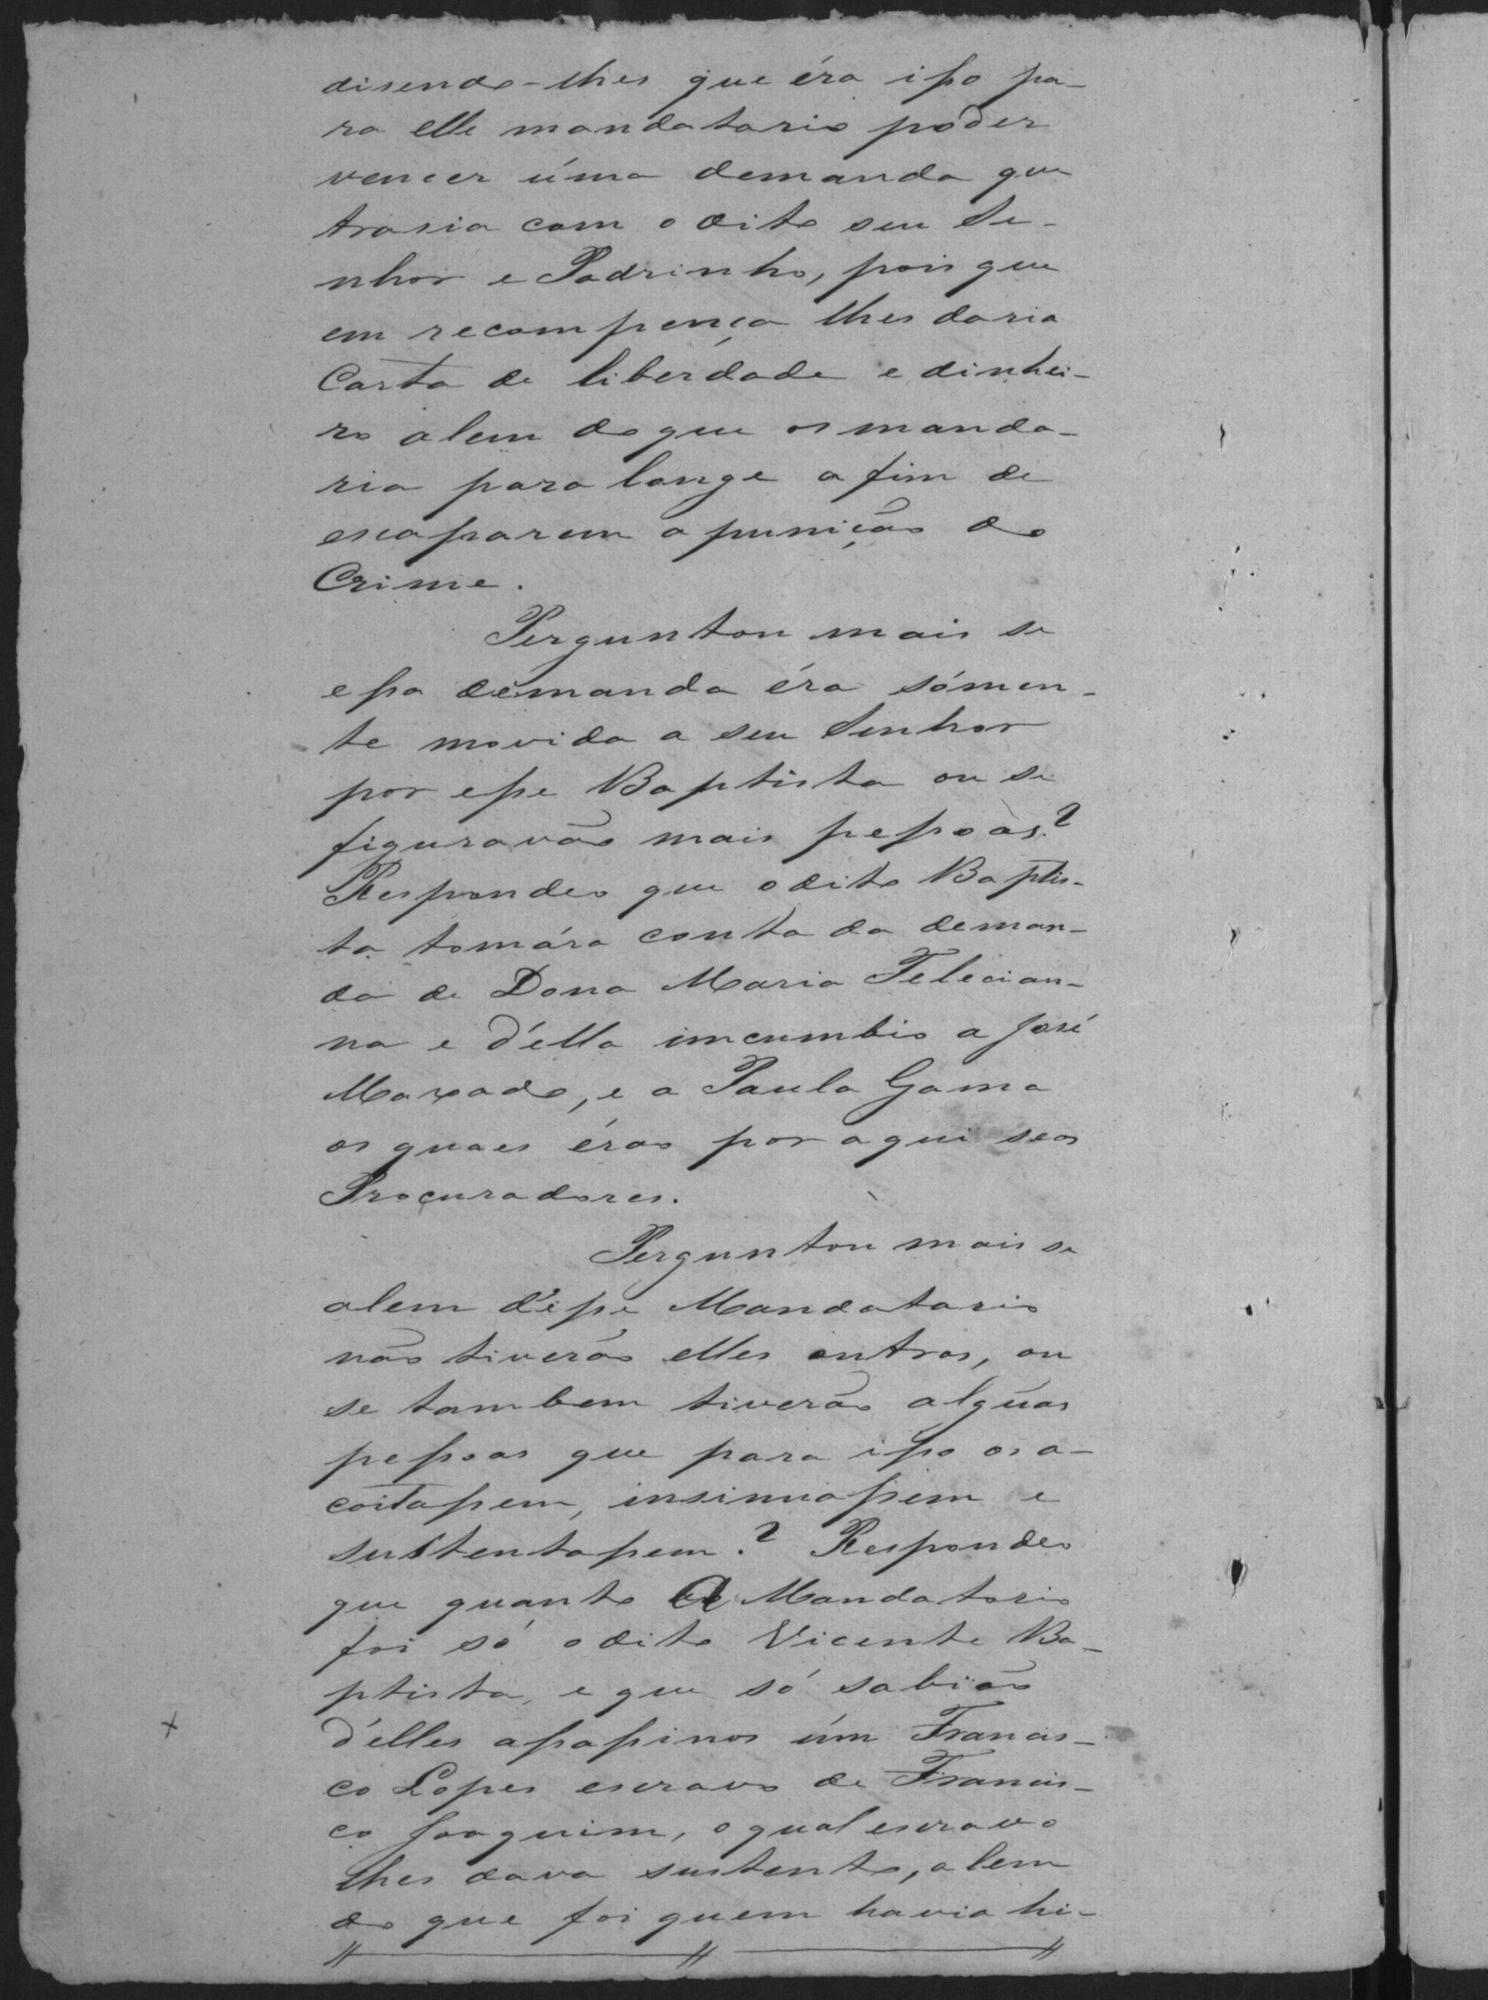 disendo-lhes que éra isso pa-
ra elle mandatario poder
vencer úma demanda que
trasia com o dito seu Se-
nhor e Padrinho, pois que
em recompença lhes daria
Carta de liberdade e dinhei-
ro alem do que os manda-
ria para longe a fim de
escaparem a punição do
Crime.
Perguntou mais se
essa demanda éra sómen-
te movida a seu Senhor
por esse Baptista ou se
figuravão mais pessoas?
Respondeo que o dito Baptis-
ta tomára conta da deman-
da de Dona Maria Felecian-
na e d'élla imcumbio a José
Maxado, e a Paula Gama
os quaes érão por aqui seos
Procuradores.
Perguntou mais se
alem d'esse Mandatario
não tiverão elles outros, ou
se tambem tiverão algũas
pessoas que para isso os a-
coitassem, insinuassem e
sustentassem? Respondeo
que quanto a Mandatario
foi só o dito Vicente Ba-
ptista, e que só sabião
d'élles assassinos úm Francis-
co Lopes escravo de Francis-
co Joaquim, o qual escravo
lhes dava sustento, alem
do que foi quem havia hi-